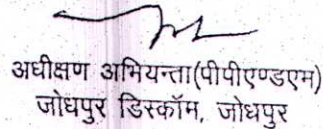 अधीक्षण अभियन्ता(पीपीएण्डएम)
जोधपुर डिस्कॉम, जोधपुर